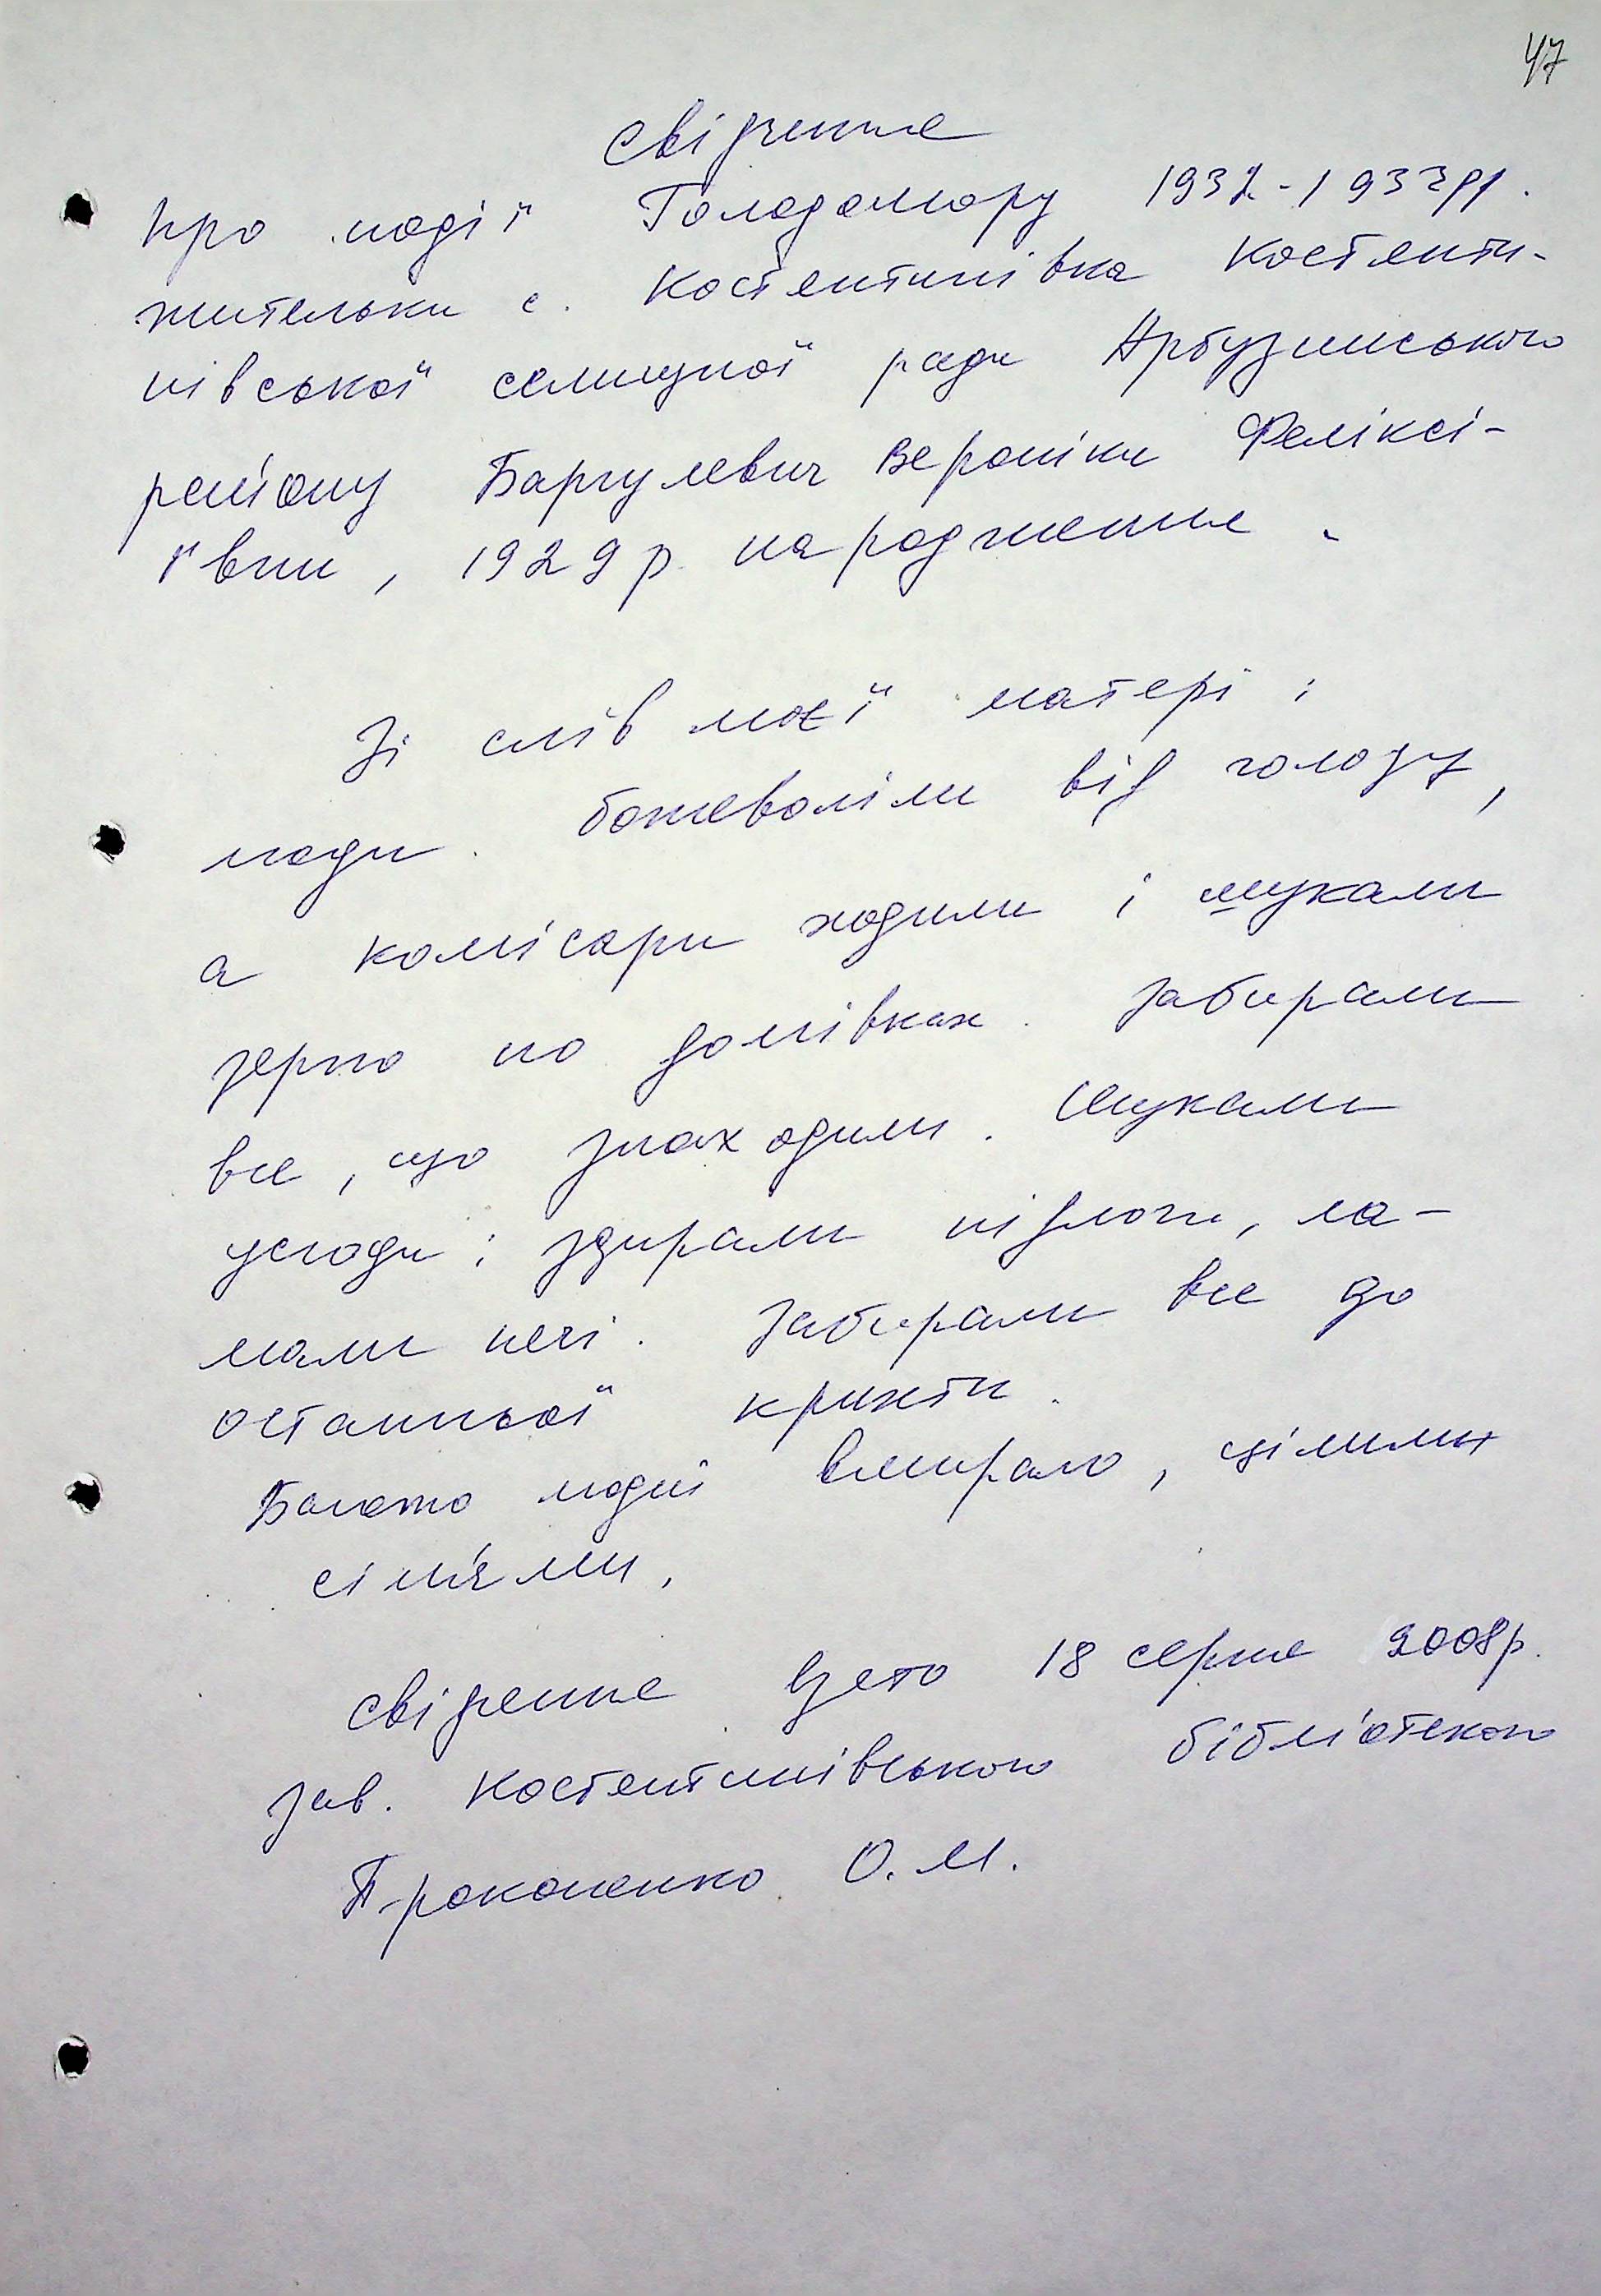 47
Свідчення
про події Голодомору 1932-1933рр.
жительки с. Костянтинівка Костянти-
нівської селищної ради Арбузинського
району Баргулевич Вероніки Феліксі-
ївни, 1929 р. народження.
Зі слів моєї матері:
люди божеволіли від голоду,
а комісари ходили і шукали
зерно по домівках. Забирали
все, що знаходили. Шукали
усюди: здирали підлоги, ла-
мали печі. Забирали все до
останньої крихти.
Багато людей вмирало, цілими
сім'ями.
Свідчення взято 18 серпня 2008р.
зав. Костянтинівською бібліотекою
Прокопенко О.М.